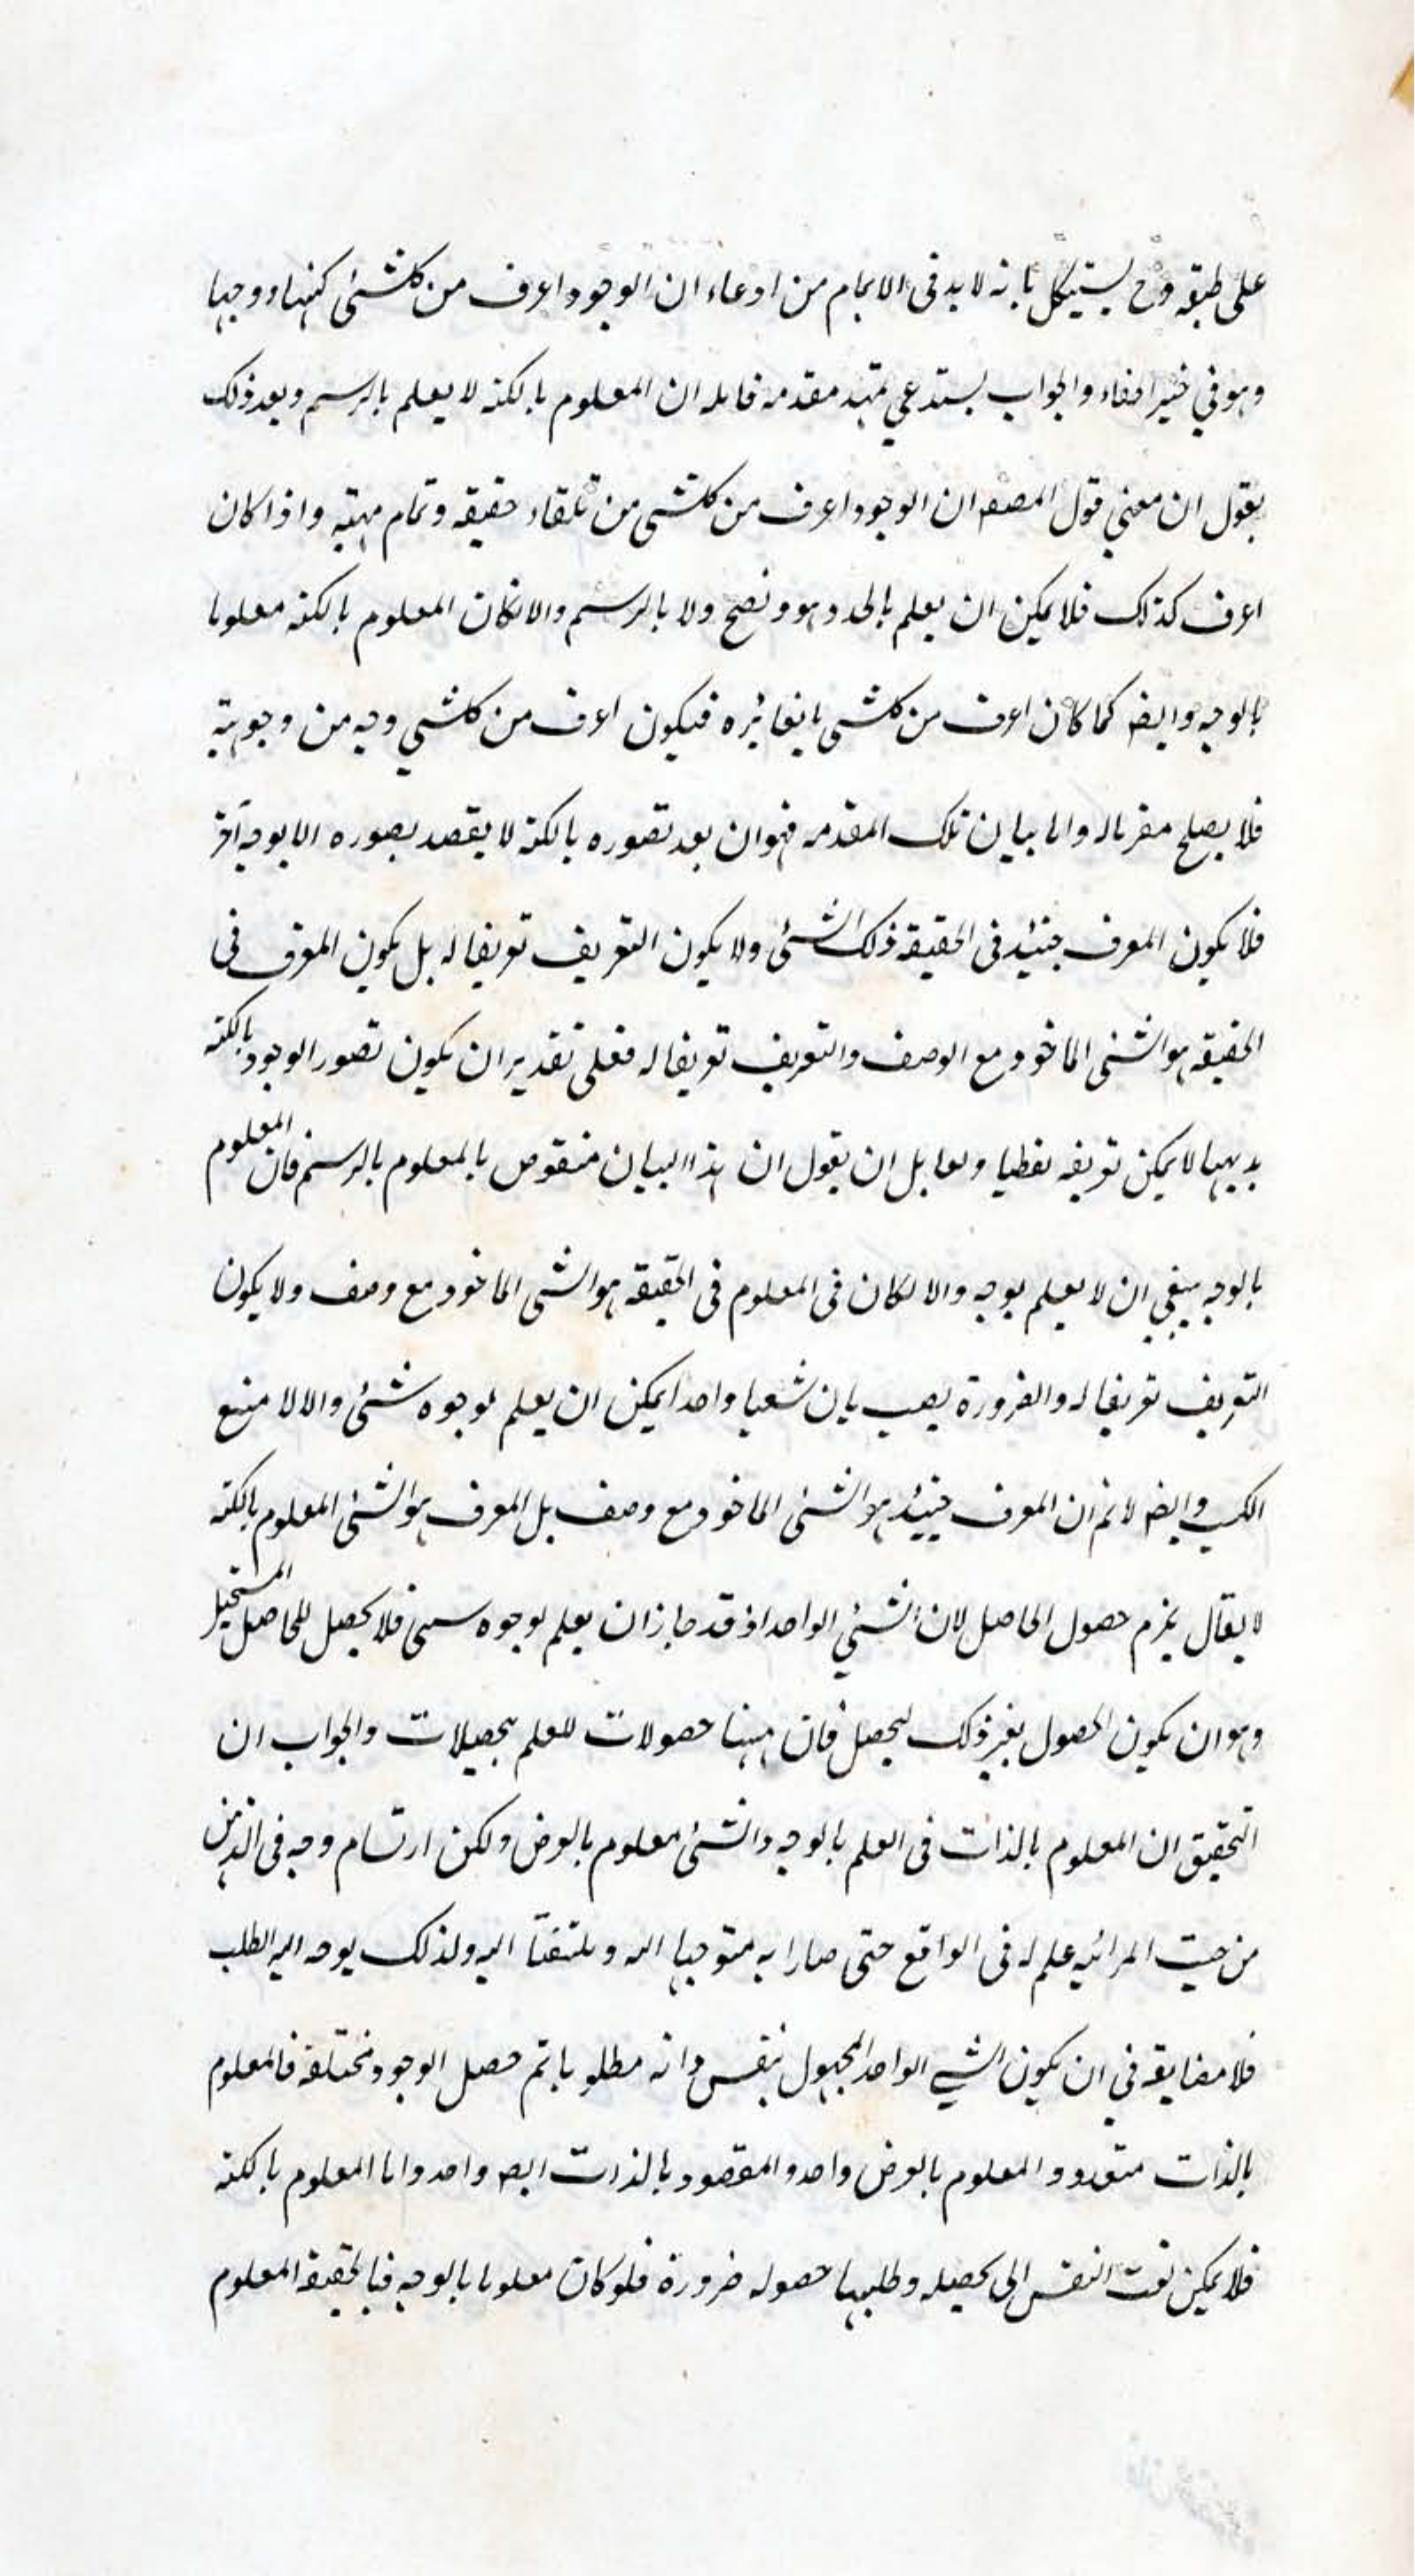 على طبقه وح يستشكل بانه لا بد فى الاتمام من ادعاء ان الوجود اعرف من كلشئ كنها ووجها
وهو في خير اخفاء والجواب يستدعي تمهيد مقدمه قابله ان المعلوم بالكنه لا يعلم بالرسم وبعد ذلك
يقول ان معني قول المصنف ان الوجود اعرف من كلشى من تلقاء حقيقه وتمام مهيته واذا كان
اعرف كذلك فلا يمكن ان يعلم بالحد وهو ونصح ولا بالرسم والا لكان المعلوم بالكنه معلوما
بالوجه وايضا كما كان اعرف من كلشى بايغائره فيكون اعرف من كلشي وجه من وجوهيته
فلا يصلح معرفا له واما بيان تلك المقدمه فهو ان بعد تصوره بالكنه لا يقصد بصوره الا بوجه آخر
فلا يكون المعرف حينئذ فى الحقيقه ذلك الشئى ولا يكون التعريف تعريفا له بل يكون المعرف فى
الحقيقه هو الشئى الماخوذ مع الوصف والتعريف تعريفا له فعلى تقدير ان يكون تصور الوجود بالكنه
بديهيا لا يمكن تعريفه لفظيا ولقابل ان يقول ان هذا البيان منقوص بالمعلوم بالرسم فان المعلوم
بالوجه ينبغي ان لا يعلم بوجه والا لكان فى المعلوم فى الحقيقه هو الشئى الماخوذ مع وصف ولا يكون
التعريف تعريفا له والضرورة يصب بان شعيا واحدا يمكن ان يعلم بوجوه شئى والا لا متنع
الكسب وايضا لا نم ان المعرف حينئذ هو الشئى الماخوذ مع وصف بل المعرف هو الشئى المعلوم بالكنه
لا يقال يلزم حصول الحاصل لان الشئي الواحد اذ قد جاز ان يعلم بوجوه سىى فلا يحصل للحاصل المستحيل
وهو ان يكون الحصول بغير ذلك ليحصل فان ههنا حصولات للعلم بحصيلات والجواب ان
التحقيق ان المعلوم بالذات فى العلم بالوجه والشئى معلوم بالعرض ولكن ارتسام وجه فى الذهن
من حيث المرائيه علم له فى الواقع حتى صار ا به متوجها اليه وملتفتا اليه ولذلك يوجه اليه الطلب
فلا مضايقه في ان يكون الشيي الواحد المجهول بنفس ذاته مطلوبا بتم حصل الوجود مختلفه فالمعلوم
بالذات متعدد والمعلوم بالعرض واحد والمقصود بالذات ايضه واحد واما المعلوم بالكنه
فلا يمكن لفت النفس الى تحصيله وطلبها حصوله ضرورة فلو كان معلوما بالوجه فبالحقيقة المعلوم